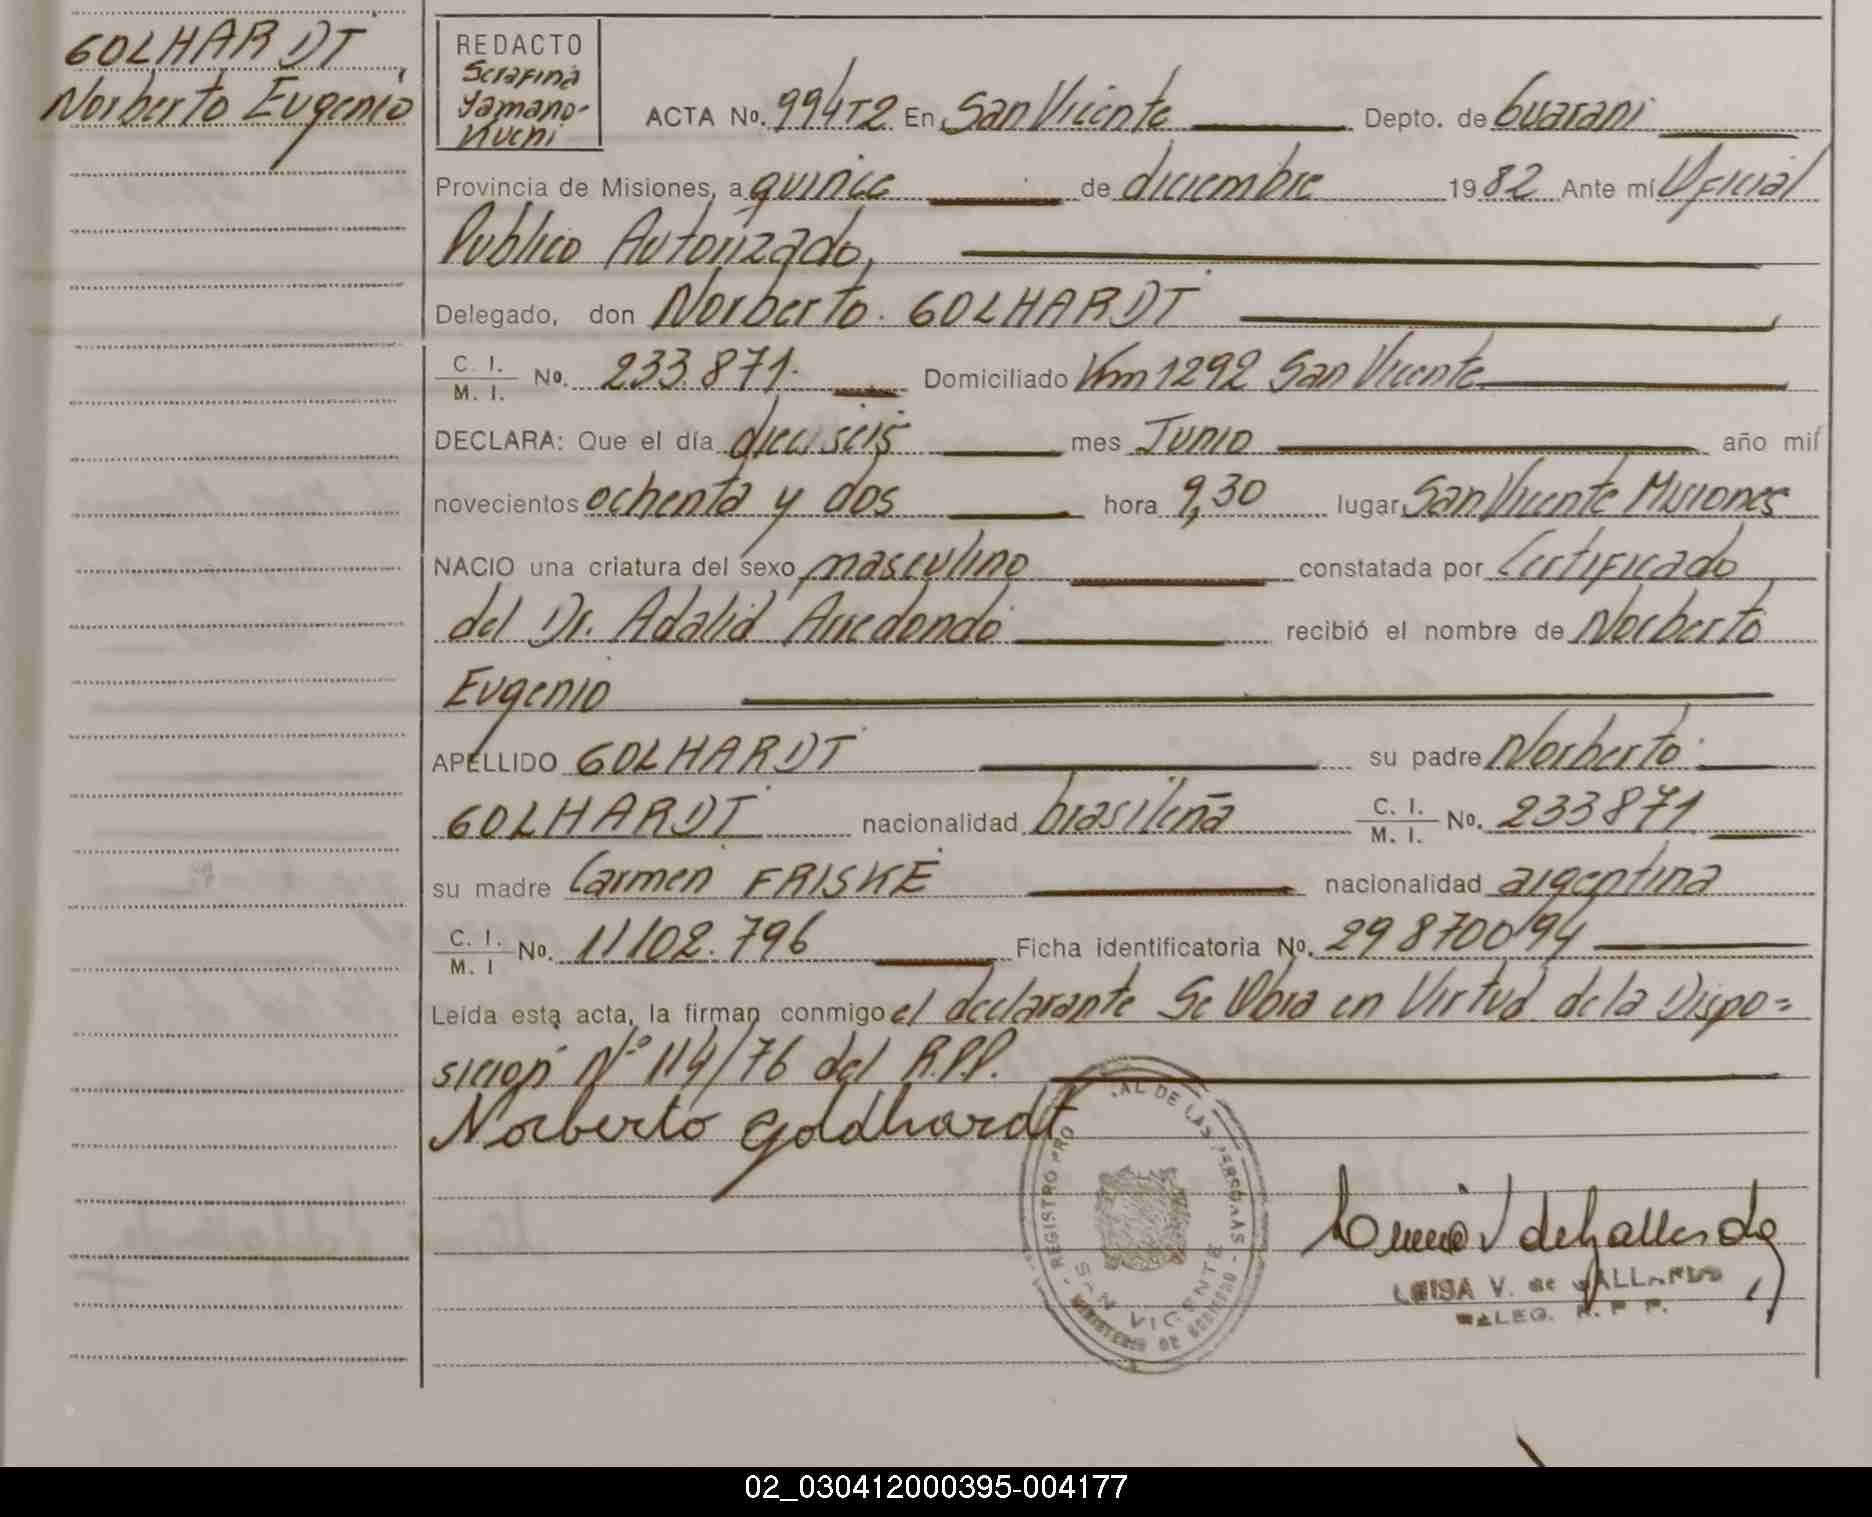 GOLHARDT
Norberto Eugenio
REDACTO
Serafina
Yamano-
Kuchi
ACTA No. 994T2 En San Vicente Depto. de Guarani
Provincia de Misiones, a quince de diciembre 1982 Ante mí Oficial
Publico Autorizado,
Delegado, don Norberto GOLHARDT
C. I. / M. I. No. 233.871. Domiciliado Km 1292 San Vicente
DECLARA: Que el día dieciseis mes Junio año mil
novecientos ochenta y dos hora 9,30 lugar San Vicente Misiones
NACIO una criatura del sexo masculino constatada por Certificado
del Dr. Adalid Arredondo recibió el nombre de Norberto
Eugenio
APELLIDO GOLHARDT su padre Norberto
GOLHARDT nacionalidad brasileña C. I. / M. I. No. 233871
su madre Carmen FRISKE nacionalidad argentina
C. I. / M. I No. 11102.796 Ficha identificatoria No. 29870094
Leída esta acta, la firman conmigo el declarante Se labra en Virtud de la Dispo=
sicion Nº 114/76 del R.P.P.
Norberto Goldhardt
REGISTRO PRO AL DE LAS PERSONAS
SAN VICENTE
V. de Gallardo
V. de GALLARDO
DELEG. R. P. P.
02_030412000395-004177